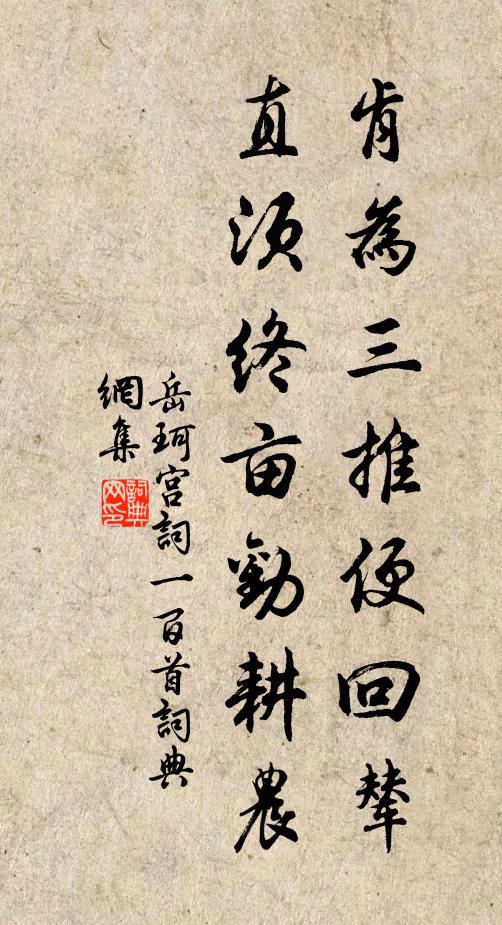 肯為三推便回輦
直須終亩勸耕農
岳珂宮詞一百首詞典
網集
詞典
网印